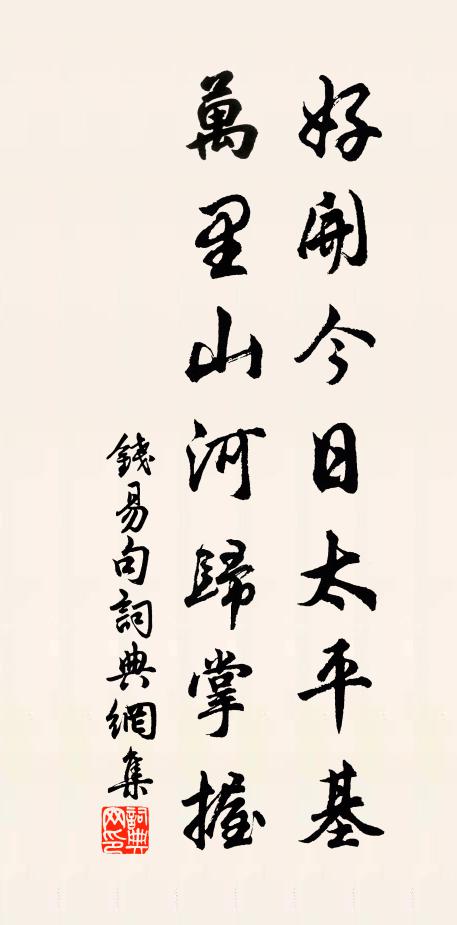 好開今日太平基
萬里山河歸掌握
錢易句詞典網集
詞典
网印